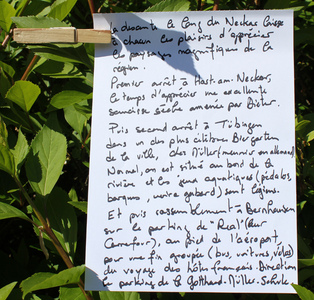 La descente le long du Neckar laisse
à chacun les plaisirs d'apprécier
les paysages magnifiques de la
région.
Premier arrêt à Hart am Neckar,
le temps d'apprécier une excellente
saucisse sèche amenée par Dieter.
Puis second arrêt à Tübingen
dans un des plus célèbres Biergarten
de la ville, chez Müller (meunier en allemand)
Normal, on est situé au bord de la
rivière et les jeux aquatiques (pédalos,
barques, voire gabord) sont légions.
Et puis rassemblement à Bernhausen
sur le parking de "Real" (leur
Carrefour), au pied de l'aéroport,
pour une fin groupée (bus, voitures, vélos)
du voyage des hôtes français. Direction
le parking de la Gotthard-Müller-Schule